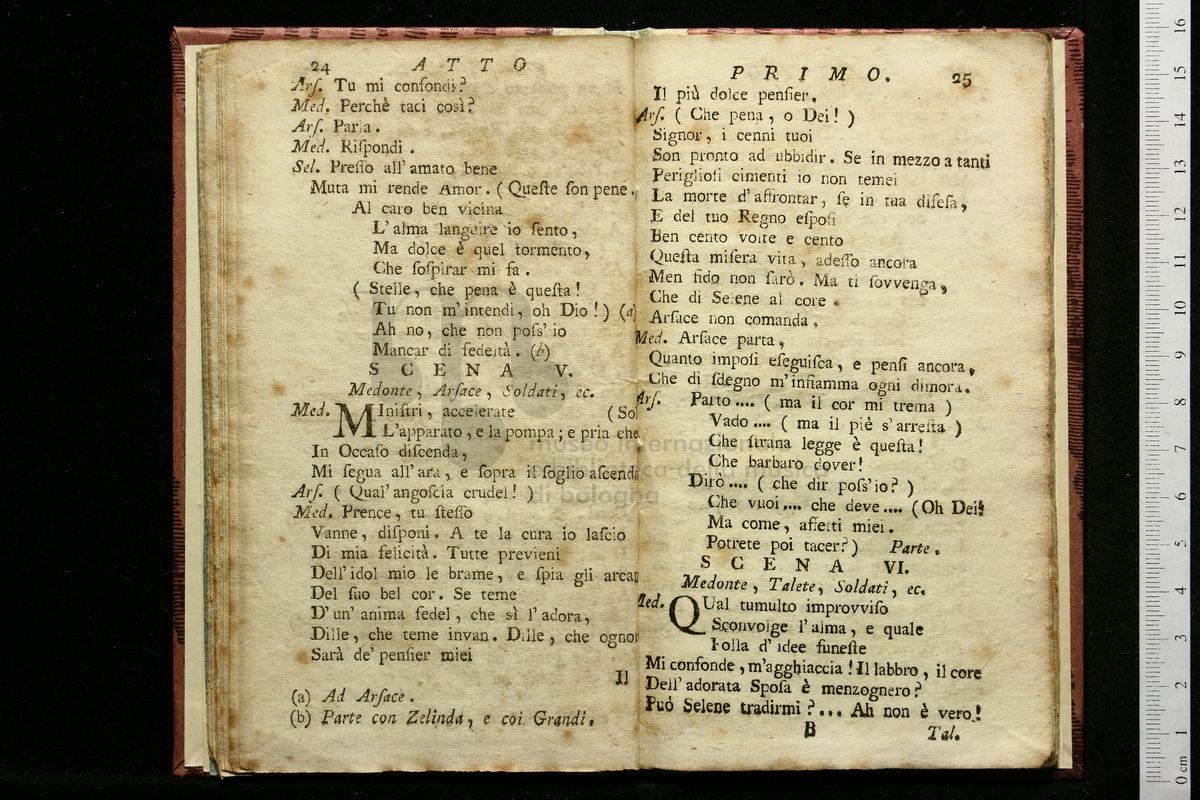 24 ATTO
Arſ. Tu mi confondi?
Med. Perchè taci così?
Arſ. Parla.
Med. Riſpondi.
Sel. Preſſo all'amato bene
Muta mi rende Amor. (Queſte ſon pene.
Al caro ben vicina
L'alma languire io ſento,
Ma dolce è quel tormento,
Che ſoſpirar mi fa.
(Stelle, che pena è queſta!
Tu non m'intendi, oh Dio!) (a)
Ah no, che non poſs'io
Mancar di fedeltà. (b)
SCENA V.
Medonte, Arſace, Soldati, ec.
Med. MIniſtri, accelerate (Sol
L'apparato, e la pompa; e pria che
In Occaſo diſcenda,
Mi ſegua all'ara, e ſopra il ſoglio aſcenda
Arſ. (Qual'angoſcia crudel!)
Med. Prence, tu ſteſſo
Vanne, diſponi. A te la cura io laſcio
Di mia felicità. Tutte previeni
Dell'idol mio le brame, e ſpia gli arcan
Del ſuo bel cor. Se teme
D'un'anima fedel, che sì l'adora,
Dille, che teme invan. Dille, che ognor
Sarà de' penſier miei
Il
(a) Ad Arſace.
(b) Parte con Zelinda, e coi Grandi.
PRIMO. 25
Il più dolce penſier.
Arſ. (Che pena, o Dei!)
Signor, i cenni tuoi
Son pronto ad ubbidir. Se in mezzo a tanti
Periglioſi cimenti io non temei
La morte d'affrontar, ſe in tua difeſa,
E del tuo Regno eſpoſi
Ben cento volte e cento
Queſta miſera vita, adeſſo ancora
Men fido non ſarò. Ma ti ſovvenga,
Che di Selene al core
Arſace non comanda.
Med. Arſace parta,
Quanto impoſi eſeguiſca, e penſi ancora,
Che di ſdegno m'infiamma ogni dimora.
Arſ. Parto.... (ma il cor mi trema)
Vado.... (ma il piè s'arreſta)
Che ſtrana legge è queſta!
Che barbaro dover!
Dirò.... (che dir poſs'io?)
Che vuoi.... che deve.... (Oh Dei!
Ma come, affetti miei.
Potrete poi tacer?) Parte.
SCENA VI.
Medonte, Talete, Soldati, ec.
Med. QUal tumulto improvviſo
Sconvolge l'alma, e quale
Folla d'idee funeſte
Mi confonde, m'agghiaccia! Il labbro, il core
Dell'adorata Spoſa è menzognero?
Può Selene tradirmi?... Ah non è vero!
B Tal.
museo internazionale
e biblioteca della musica
di bologna
0 cm 1 2 3 4 5 6 7 8 9 10 11 12 13 14 15 16